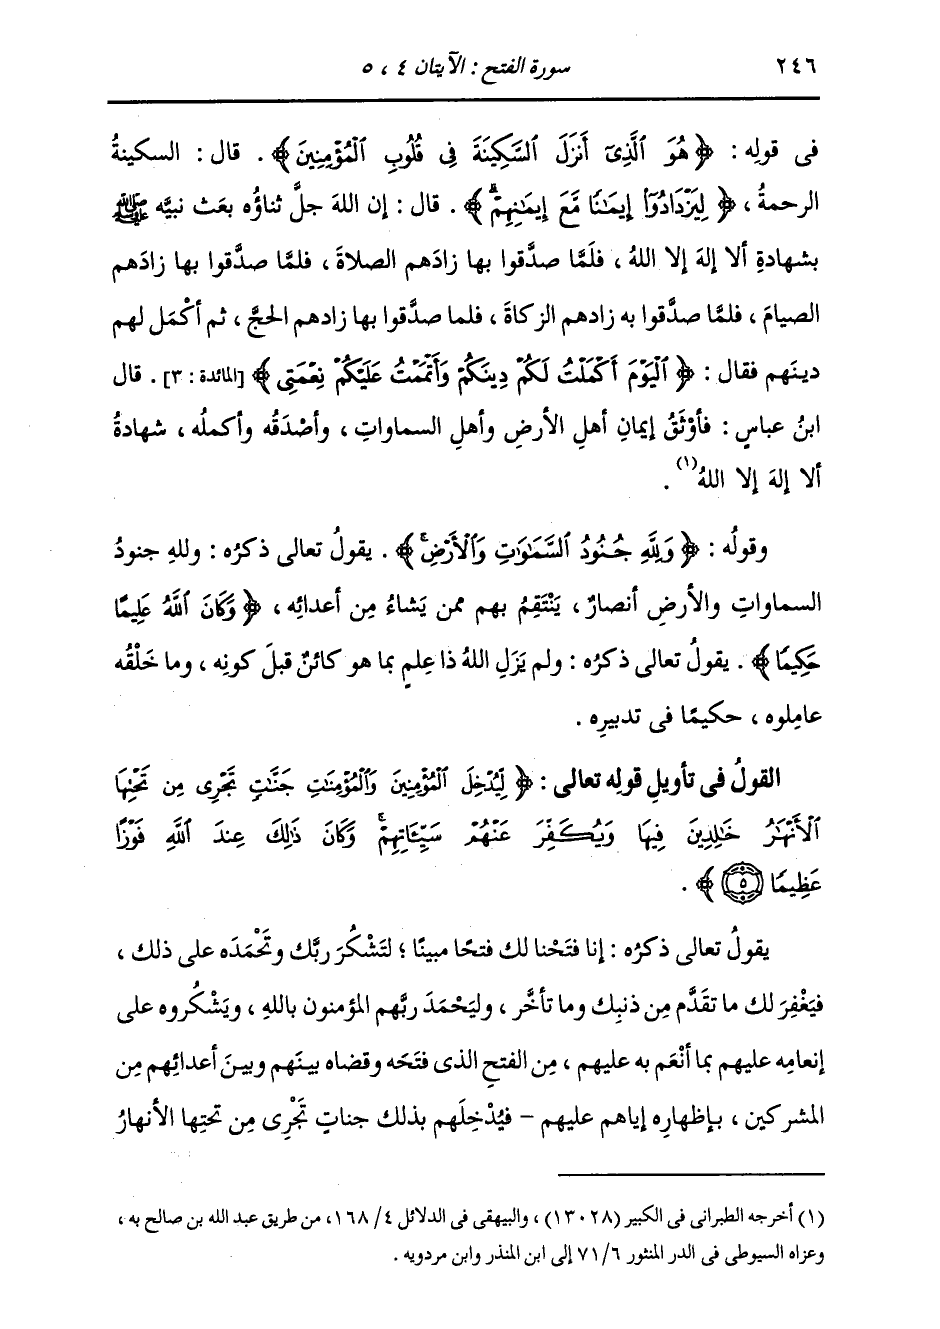 ٢٤٦ سورة الفتح : الآيتان ٤ ، ٥
فى قولِه : ﴿ هُوَ ٱلَّذِىٓ أَنزَلَ ٱلسَّكِينَةَ فِى قُلُوبِ ٱلْمُؤْمِنِينَ ﴾ . قال : السكينةُ
الرحمةُ ، ﴿ لِيَزْدَادُوٓا۟ إِيمَٰنًا مَّعَ إِيمَٰنِهِمْ ۗ ﴾ . قال : إن اللهَ جلَّ ثناؤُه بعَث نبيَّه ﷺ
بشهادةِ ألا إلهَ إلا اللهُ ، فلَمَّا صدَّقوا بها زادَهم الصلاةَ ، فلمَّا صدَّقوا بها زادَهم
الصيامَ ، فلمَّا صدَّقوا به زادهم الزكاةَ ، فلما صدَّقوا بها زادهم الحجَّ ، ثم أكْمَل لهم
دينَهم فقال : ﴿ ٱلْيَوْمَ أَكْمَلْتُ لَكُمْ دِينَكُمْ وَأَتْمَمْتُ عَلَيْكُمْ نِعْمَتِى ﴾ [المائدة : ٣] . قال
ابنُ عباسٍ : فأوْثَقُ إيمانِ أهلِ الأرضِ وأهلِ السماواتِ ، وأصْدَقُه وأكملُه ، شهادةُ
ألا إلهَ إلا اللهُ(١) .
وقولُه : ﴿ وَلِلَّهِ جُنُودُ ٱلسَّمَٰوَٰتِ وَٱلْأَرْضِ ۚ ﴾ . يقولُ تعالى ذكرُه : وللهِ جنودُ
السماواتِ والأرضِ أنصارٌ ، يَنْتَقِمُ بهم ممن يَشاءُ مِن أعدائِه ، ﴿ وَكَانَ ٱللَّهُ عَلِيمًا
حَكِيمًا ﴾ . يقولُ تعالى ذكرُه : ولم يَزَلِ اللهُ ذا عِلمٍ بما هو كائنٌ قبلَ كونِه ، وما خَلْقُه
عامِلوه ، حكيمًا فى تدبيرِه .
القولُ فى تأويلِ قولِه تعالى : ﴿ لِّيُدْخِلَ ٱلْمُؤْمِنِينَ وَٱلْمُؤْمِنَٰتِ جَنَّٰتٍ تَجْرِى مِن تَحْتِهَا
ٱلْأَنْهَٰرُ خَٰلِدِينَ فِيهَا وَيُكَفِّرَ عَنْهُمْ سَيِّـَٔاتِهِمْ ۚ وَكَانَ ذَٰلِكَ عِندَ ٱللَّهِ فَوْزًا
عَظِيمًا ٥ ﴾ .
يقولُ تعالى ذكرُه : إنا فتَحْنا لك فتحًا مبينًا ؛ لتَشْكُرَ ربَّك وتَحْمَدَه على ذلك ،
فيَغْفِرَ لك ما تقَدَّم مِن ذنبِك وما تأخَّر ، وليَحْمَدَ ربَّهم المؤمنون باللهِ ، ويَشْكُروه على
إنعامِه عليهم بما أنْعَم به عليهم ، مِن الفتحِ الذى فتَحَه وقضاه بينَهم وبينَ أعدائِهم مِن
المشركين ، بإظهارِه إياهم عليهم – فيُدْخِلَهم بذلك جناتٍ تَجْرِى مِن تحتِها الأنهارُ
(١) أخرجه الطبرانى فى الكبير (١٣٠٢٨) ، والبيهقى فى الدلائل ٤/ ١٦٨، من طريق عبد الله بن صالح به ،
وعزاه السيوطى فى الدر المنثور ٧١/٦ إلى ابن المنذر وابن مردويه .